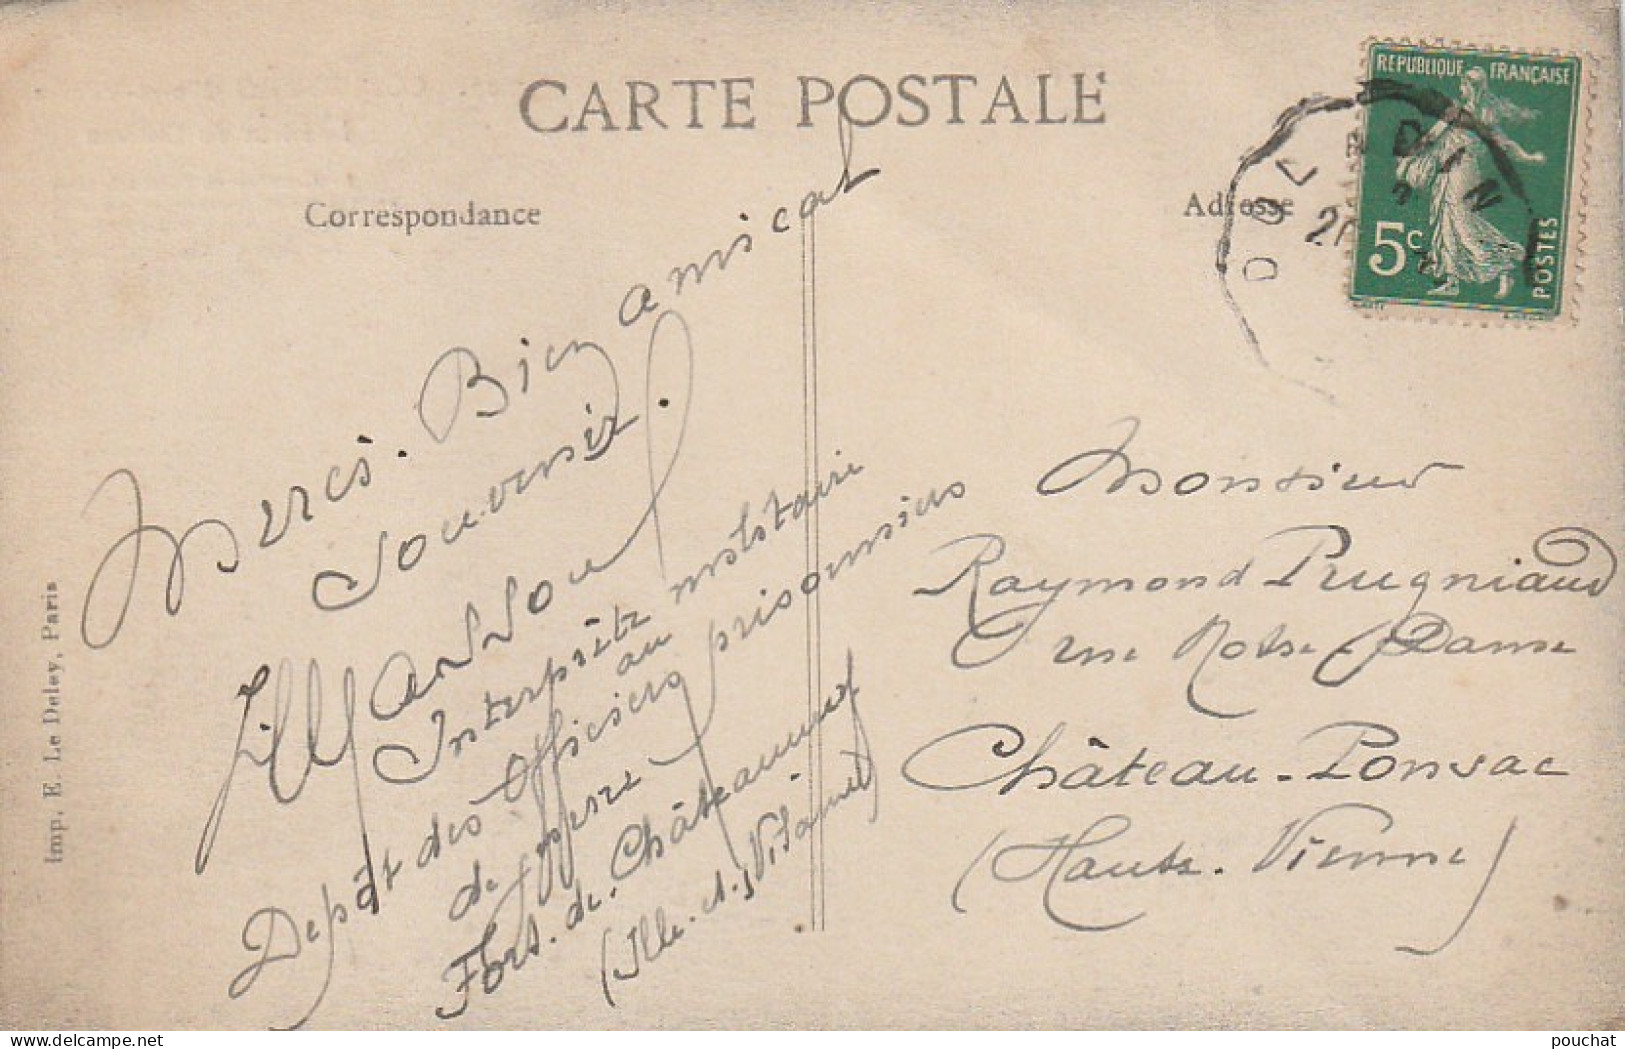 CARTE POSTALE
Correspondance
Adresse
REPUBLIQUE FRANÇAISE
5c
POSTES
DOL DIN
20
Merci. Bien amical
Souvenir.
Interprète militaire
au
Depôt des Officiers prisonniers
de guerre
Fort-de-Châteauneuf
(Ille-et-Vilaine)
Monsieur
Raymond Prugniaud
rue Notre-Dame
Château-Ponsac
(Haute-Vienne)
Imp. E. Le Deley, Paris
www.delcampe.net
pouchat